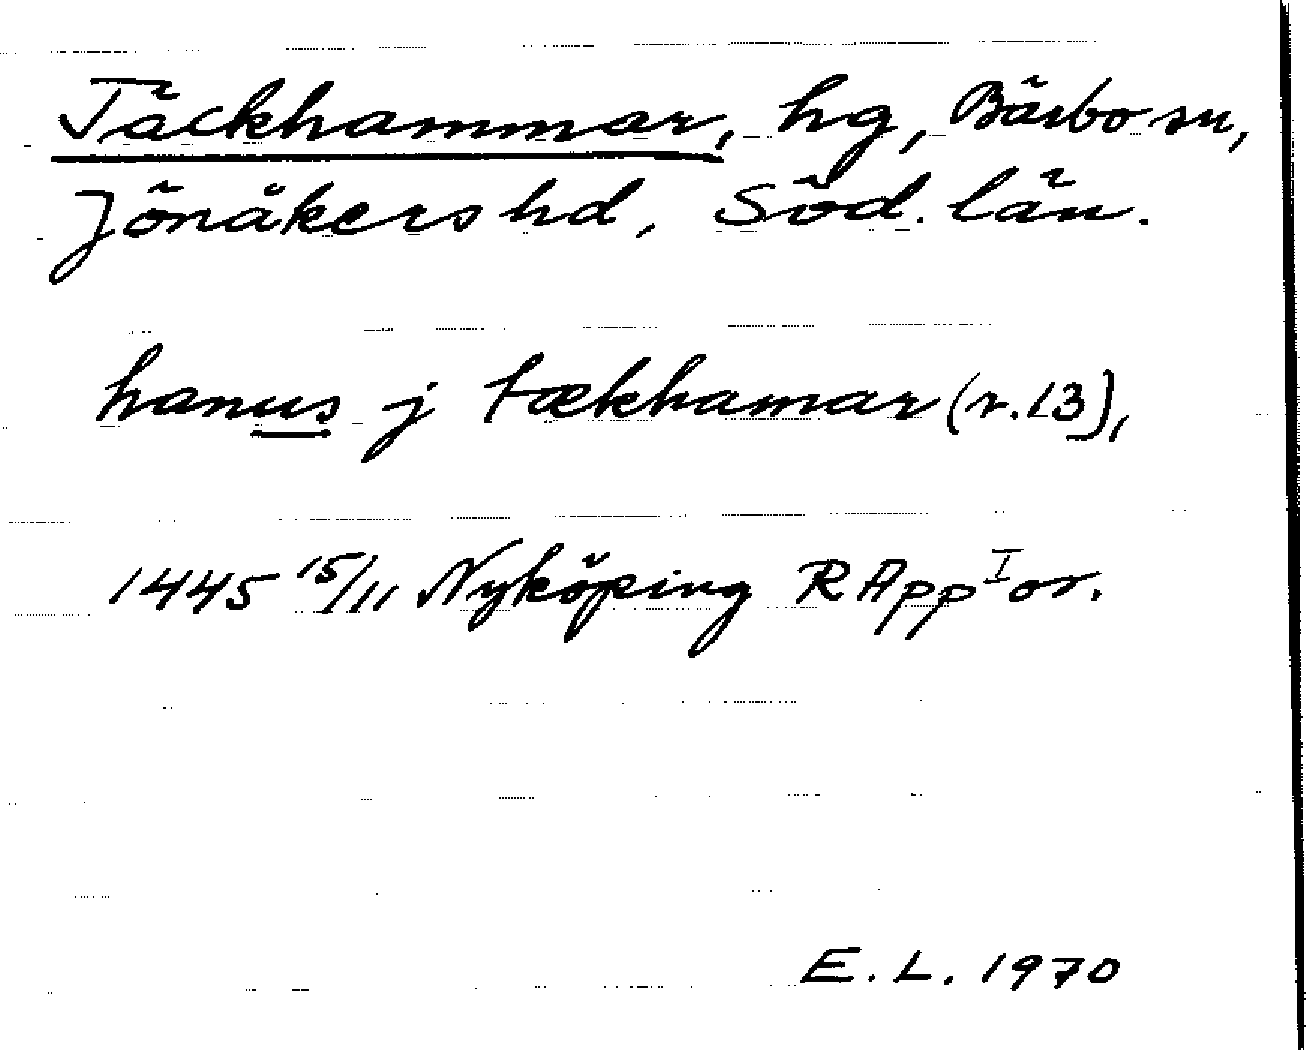 Täckhammar, hg, Bärbo sn,
Jönåkers hd, Söd. län.
hanus j tækhamar (r. 13),
1445 15/11 Nyköping RApp I or.
E. L. 1970